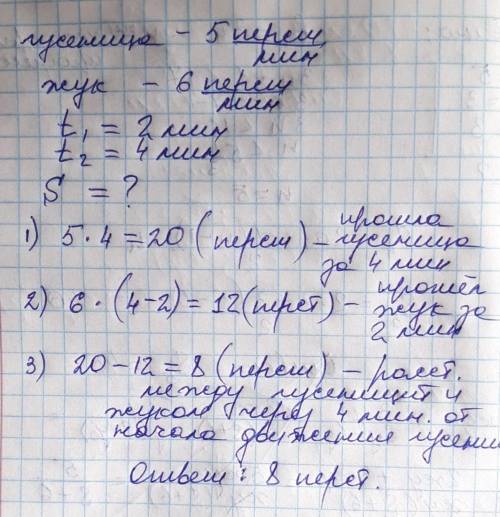 гусеница – 5 перст
мин
жук – 6 перст
мин
t₁ = 2 мин
t₂ = 4 мин
S = ?
1) 5 · 4 = 20 (перст) – прошла
гусеница
за 4 мин
2) 6 · (4-2) = 12 (перст) – прошёл
жук за
2 мин
3) 20 – 12 = 8 (перст) – расст.
между гусеницей и
жуком через 4 мин. от
начала движения гусени
Ответ: 8 перст.